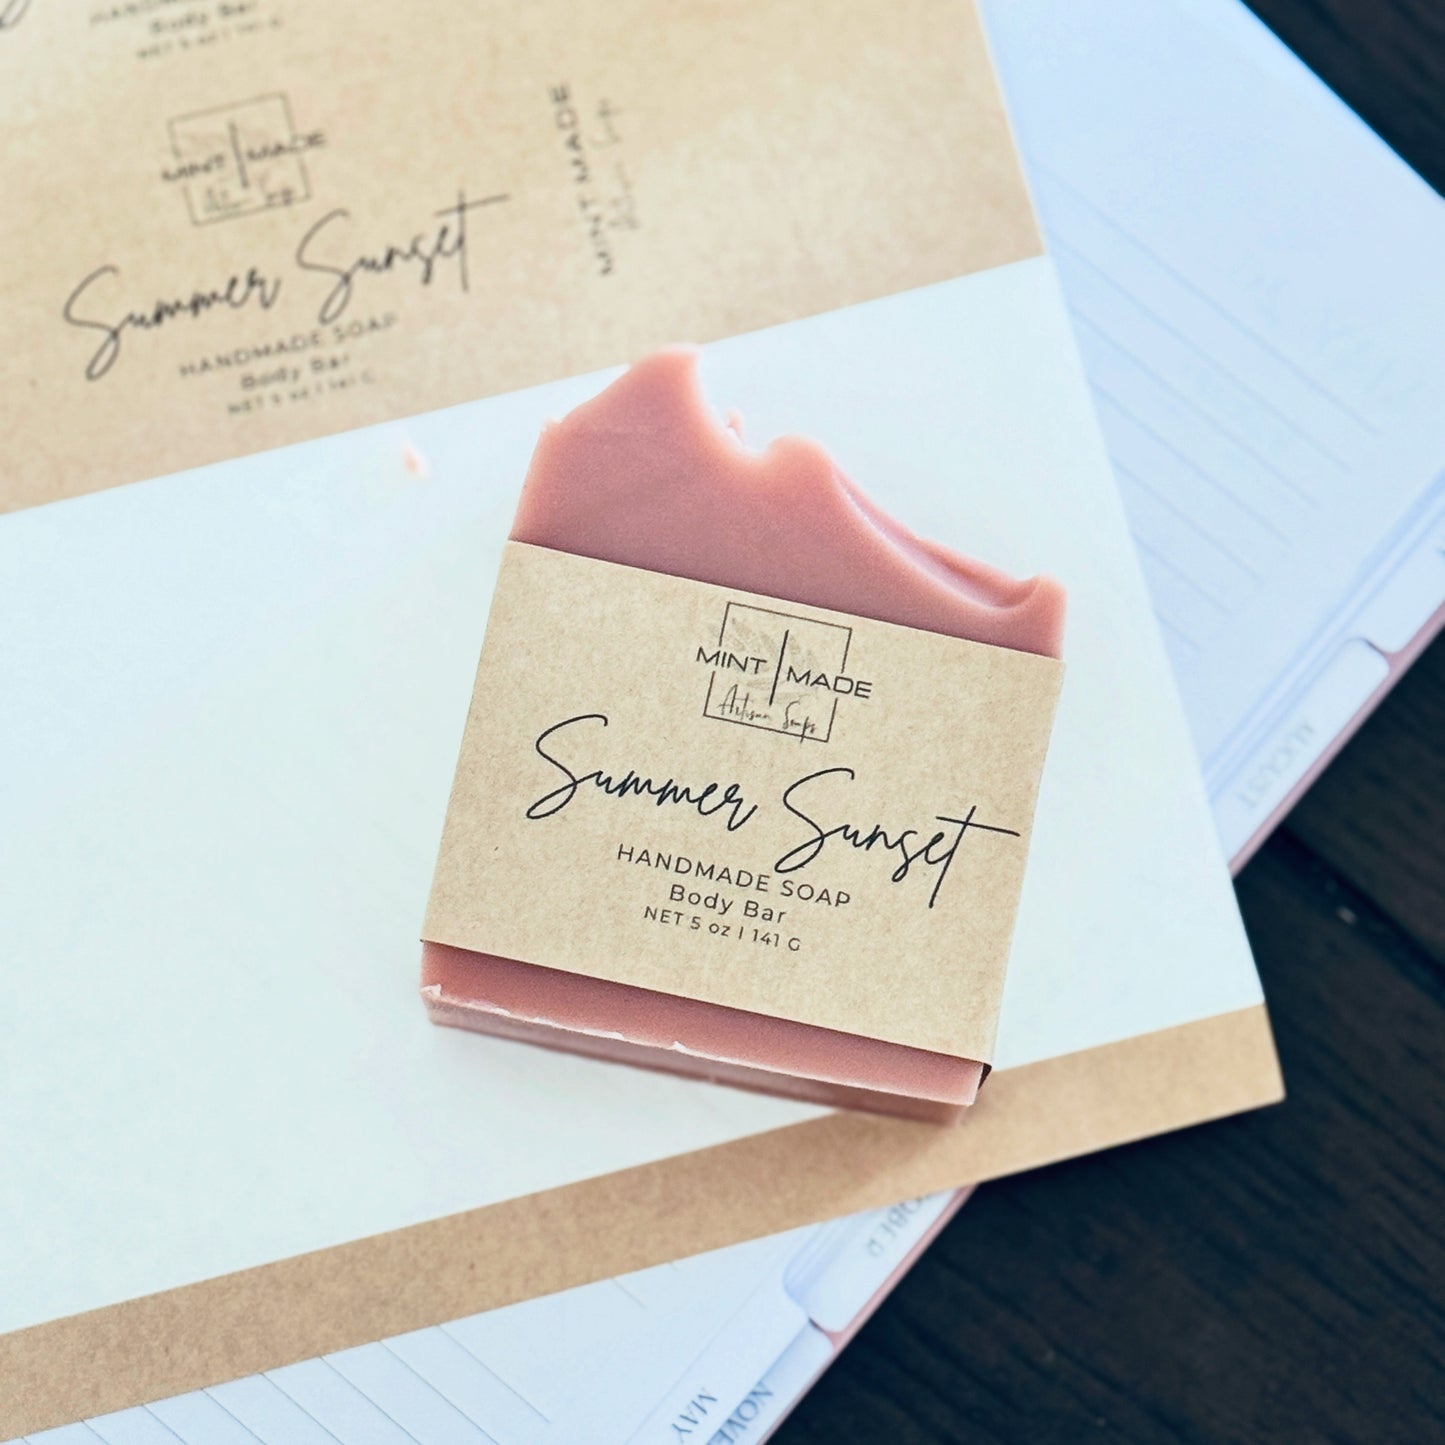 HANDMADE
Body Bar
NET 5 oz | 141 G
MINT | MADE
Summer Sunset
HANDMADE SOAP
Body Bar
NET 5 oz | 141 G
MINT MADE
MINT | MADE
Artisan Soaps
Summer Sunset
HANDMADE SOAP
Body Bar
NET 5 oz | 141 G
AUGUST
NOVE
MAY